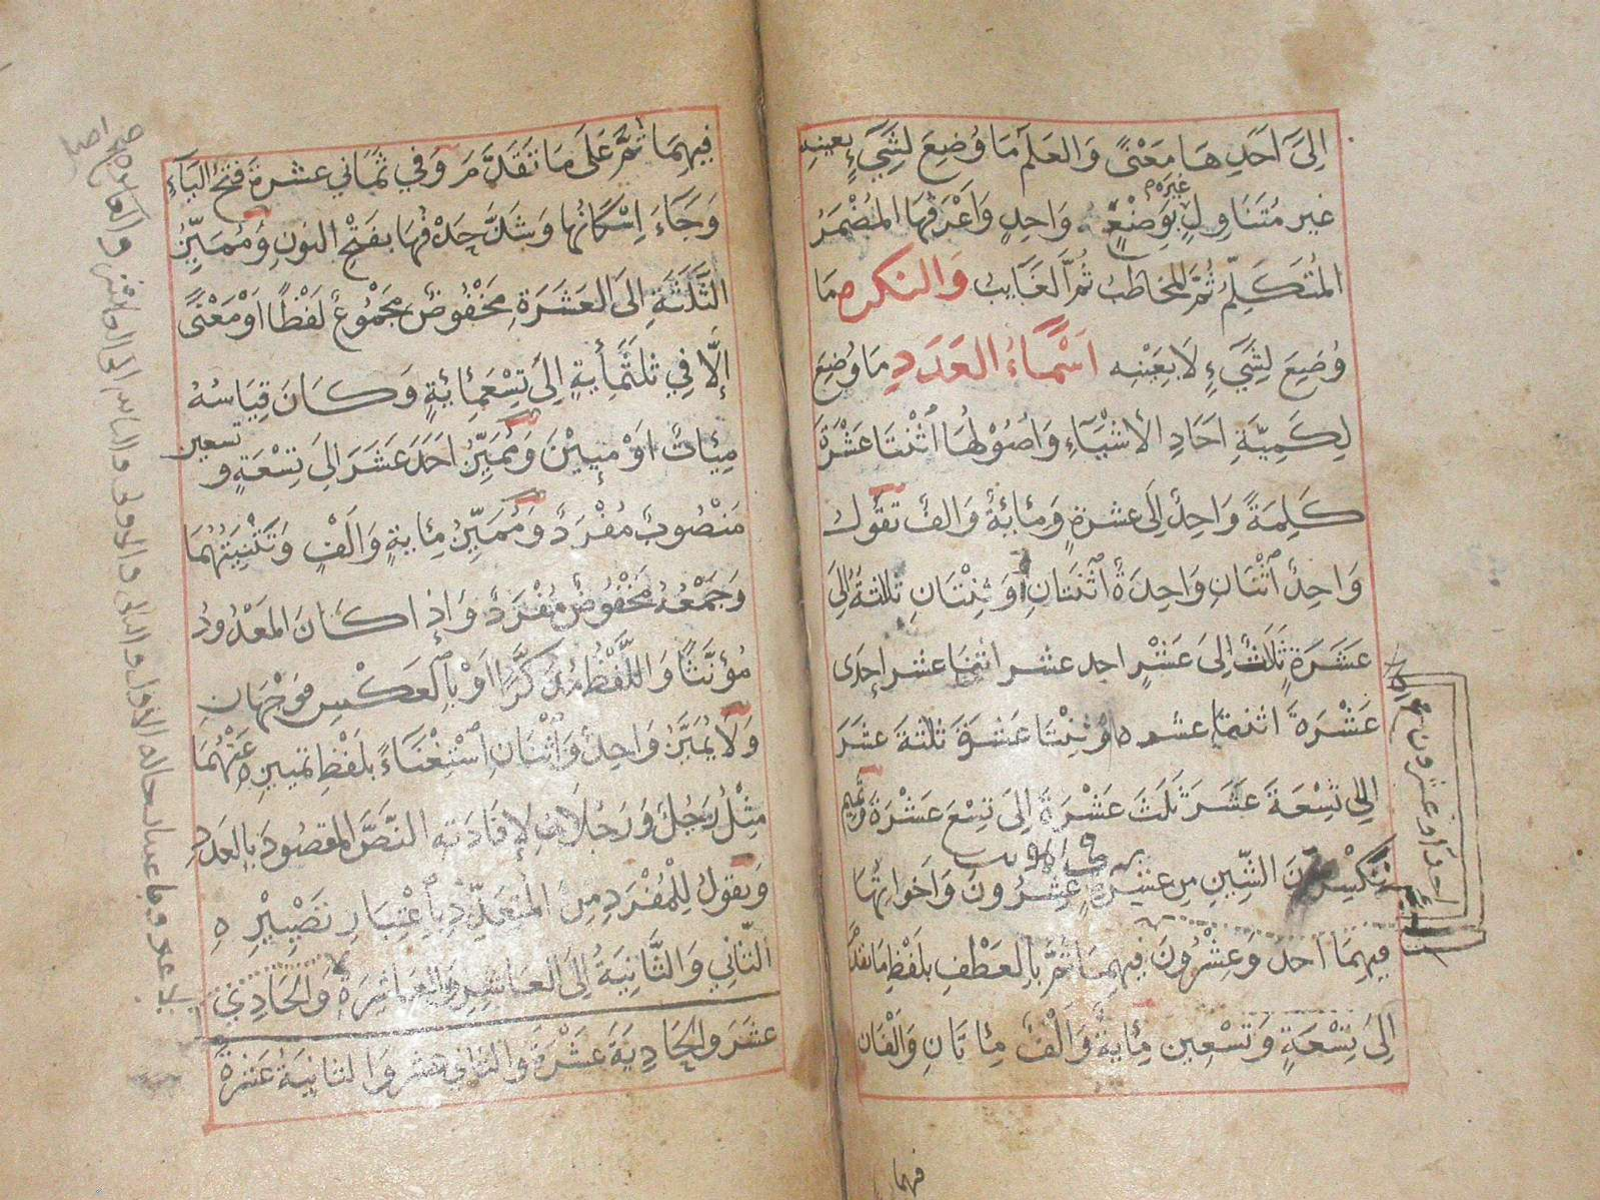 اِلىَ اَحَدِ هَا مَعْنىً وَالعَلَمُ مَا وُضِعَ لشَيْءٍ بعينِهِ
غير مُتَنَاوِلٍ غيرَه بوَضْعٍ وَاحِدٍ وَاَعْرَفُهَا المُضْمَرُ
المُتَكَلِّمُ ثُمَّ المخاطَبُ ثُمَّ الغَايبُ وَالنكره مَا
وُضِعَ لِشَيْءٍ لَا بِعَيْنِه اَسْمَاءُ العَدَدِ مَا وُضِعَ
لِكَمِيَّةِ احَادِ الأشْيَآءِ وَاصُوْلهَا اثْنَتَا عَشْرَةَ
كَلِمَةً وَاحِدٌ اِلَى عشرةٍ وَمِائةٌ وَالفٌ تقُولُ
وَاحِدٌ اثْنَانِ وَاحِدَةٌ اثْنَتَانِ اَوْ ثِنْتَانِ ثلاثةٌ اِلىَ
عَشَرَةٍ ثَلَثٌ اِلىَ عَشْرٍ احد عشر اثنا عشر اِحدَى
عَشْرَةَ اثنتا عشره اوْ ثِنْتَا عَشرَةَ ثَلثَةَ عَشَرَ
اِلىَ تسْعَةَ عَشَرَ ثَلَثَ عَشْرَةَ اِلىَ تِسْعَ عَشْرَةَ وَتميم
تُكَسِّرُونَ الشّينِ مِن عشرة عِشْرُونَ وَاَخواتهَا
فِيهِمَا احد وَعِشْرُونَ فيهِمَا ثُمَّ بالعَطْفِ بلَفْظِ مَا تقدّم
اِلىَ تِسْعَةٍ وَتسْعِين مِأيةٌ وَالْفٌ مِائتَانِ وَالْفَان
احد واحد عشرون
فيهما
فِيهِمَا ثمَّ عَلىَ مَا تَقَدَّمَ وَفي ثَمَاني عشرةَ فتحُ اليَآءِ
وَجَآءَ اِسْكَانُهَا وَشَذَّ حَذْفُهَا بفَتْحِ النونِ وَمُمَيِّزُ
الثَّلَثَةِ اِلىَ العَشَرَةِ مَخْفُوضٌ مجْمُوعٌ لَفْظًا اَوْ مَعْنىً
اِلَّا فِي ثلثمائةٍ اِلىَ تِسْعَمِائةٍ وَكَانَ قِيَاسُهُ
مِئاتٌ اَوْ مِئِيْنَ وَمُمَيِّزُ احَدَ عَشَرَ اِلىَ تِسْعَةٍ و تسعين
مَنْصُوبٌ مُفْرَدٌ وَمُمَيِّزُ مِائةٍ وَالْفٍ وَتَثْنِيَتِهُمَا
وَجَمْعُهُ مَخْفُوضٌ مُفْرَدٌ وَاِذا كَانَ المَعْدُودُ
مُؤنَّثًا وَاللَّفْظُ مُذَكَّرًا اَوْ بِالعَكْسِ فوَجْهَانِ
وَلَا يُمَيَّزُ وَاحِدٌ وَاثْنَانِ اِسْتِغْنَآءً بلَفْظِ تمييزِه عَنْهُمَا
مِثْلُ رَجُلٌ وَرَجُلَانِ لِإفَادَتِهِ النّصَّ المَقصُودَ بالعَدَدِ
وَيقولُ لِلمُفْرَدِ مِنَ المُتعَدِّدِ بِاعْتِبَارِ تصْييْرِه
الثّاني وَالثَّانِيَةُ اِلىَ العَاشِرِ وَالعَاشِرَةِ وَالحَادِي
عشَرَ والحَادِيَةَ عَشْرَةَ وَالثاني عشر وَالثانِيَةَ عَشرَةَ